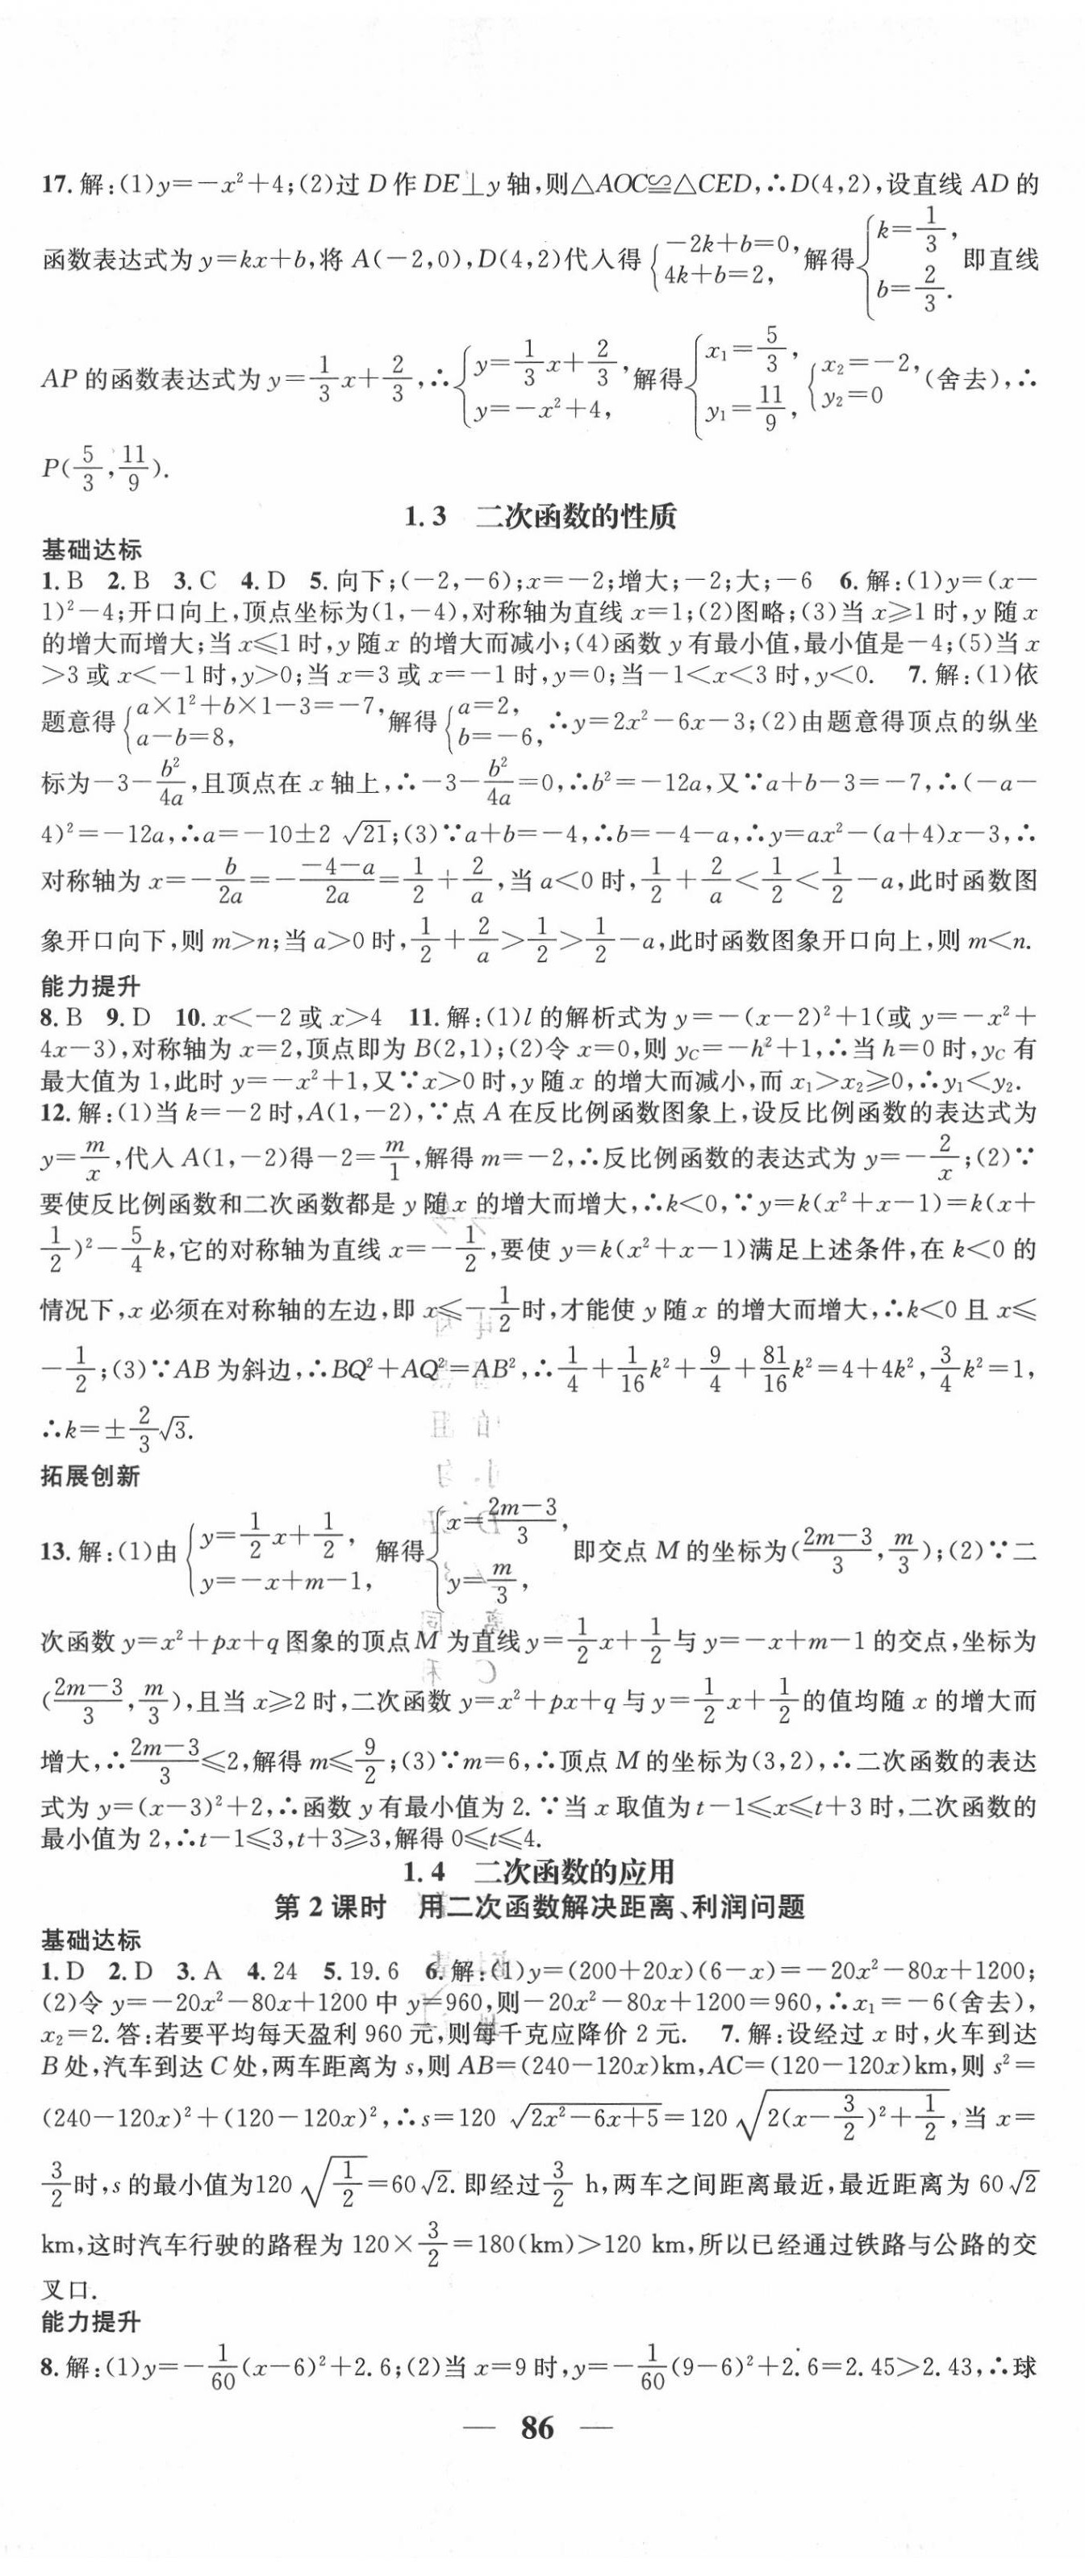 17. 解:(1)y=-x²+4;(2)过 D 作 DE⊥y 轴,则△AOC≌△CED,∴D(4,2),设直线 AD 的
函数表达式为 y=kx+b,将 A(-2,0),D(4,2)代入得{-2k+b=0, 4k+b=2,解得{k=1/3, b=2/3. 即直线
AP 的函数表达式为 y=1/3x+2/3,∴{y=1/3x+2/3, y=-x²+4,解得{x₁=5/3, y₁=11/9, {x₂=-2, y₂=0(舍去),∴
P(5/3,11/9).
1.3 二次函数的性质
基础达标
1. B 2. B 3. C 4. D 5. 向下;(-2,-6);x=-2;增大;-2;大;-6 6. 解:(1)y=(x-
1)²-4;开口向上,顶点坐标为(1,-4),对称轴为直线 x=1;(2)图略;(3)当 x≥1 时,y 随 x
的增大而增大;当 x≤1 时,y 随 x 的增大而减小;(4)函数 y 有最小值,最小值是-4;(5)当 x
>3 或 x<-1 时,y>0;当 x=3 或 x=-1 时,y=0;当-1<x<3 时,y<0. 7. 解:(1)依
题意得{a×1²+b×1-3=-7, a-b=8,解得{a=2, b=-6,∴y=2x²-6x-3;(2)由题意得顶点的纵坐
标为-3-b²/4a,且顶点在 x 轴上,∴-3-b²/4a=0,∴b²=-12a,又∵a+b-3=-7,∴(-a-
4)²=-12a,∴a=-10±2√21;(3)∵a+b=-4,∴b=-4-a,∴y=ax²-(a+4)x-3,∴
对称轴为 x=-b/2a=-(-4-a)/2a=1/2+2/a,当 a<0 时,1/2+2/a<1/2<1/2-a,此时函数图
象开口向下,则 m>n;当 a>0 时,1/2+2/a>1/2>1/2-a,此时函数图象开口向上,则 m<n.
能力提升
8. B 9. D 10. x<-2 或 x>4 11. 解:(1)l 的解析式为 y=-(x-2)²+1(或 y=-x²+
4x-3),对称轴为 x=2,顶点即为 B(2,1);(2)令 x=0,则 y_C=-h²+1,∴当 h=0 时,y_C 有
最大值为 1,此时 y=-x²+1,又∵x>0 时,y 随 x 的增大而减小,而 x₁>x₂≥0,∴y₁<y₂.
12. 解:(1)当 k=-2 时,A(1,-2),∵点 A 在反比例函数图象上,设反比例函数的表达式为
y=m/x,代入 A(1,-2)得-2=m/1,解得 m=-2,∴反比例函数的表达式为 y=-2/x;(2)∵
要使反比例函数和二次函数都是 y 随 x 的增大而增大,∴k<0,∵y=k(x²+x-1)=k(x+
1/2)²-5/4k,它的对称轴为直线 x=-1/2,要使 y=k(x²+x-1)满足上述条件,在 k<0 的
情况下,x 必须在对称轴的左边,即 x≤-1/2时,才能使 y 随 x 的增大而增大,∴k<0 且 x≤
-1/2;(3)∵AB 为斜边,∴BQ²+AQ²=AB²,∴1/4+1/16k²+9/4+81/16k²=4+4k²,3/4k²=1,
∴k=±2/3√3.
拓展创新
13. 解:(1)由{y=1/2x+1/2, y=-x+m-1,解得{x=(2m-3)/3, y=m/3,即交点 M 的坐标为((2m-3)/3,m/3);(2)∵二
次函数 y=x²+px+q 图象的顶点 M 为直线 y=1/2x+1/2与 y=-x+m-1 的交点,坐标为
((2m-3)/3,m/3),且当 x≥2 时,二次函数 y=x²+px+q 与 y=1/2x+1/2的值均随 x 的增大而
增大,∴(2m-3)/3≤2,解得 m≤9/2;(3)∵m=6,∴顶点 M 的坐标为(3,2),∴二次函数的表达
式为 y=(x-3)²+2,∴函数 y 有最小值为 2.∵当 x 取值为 t-1≤x≤t+3 时,二次函数的
最小值为 2,∴t-1≤3,t+3≥3,解得 0≤t≤4.
1.4 二次函数的应用
第 2 课时 用二次函数解决距离、利润问题
基础达标
1. D 2. D 3. A 4. 24 5. 19.6 6. 解:(1)y=(200+20x)(6-x)=-20x²-80x+1200;
(2)令 y=-20x²-80x+1200 中 y=960,则-20x²-80x+1200=960,∴x₁=-6(舍去),
x₂=2. 答:若要平均每天盈利 960 元,则每千克应降价 2 元. 7. 解:设经过 x 时,火车到达
B 处,汽车到达 C 处,两车距离为 s,则 AB=(240-120x)km,AC=(120-120x)km,则 s²=
(240-120x)²+(120-120x)²,∴s=120√(2x²-6x+5)=120√(2(x-3/2)²+1/2),当 x=
3/2时,s 的最小值为120√(1/2)=60√2. 即经过3/2 h,两车之间距离最近,最近距离为 60√2
km,这时汽车行驶的路程为 120×3/2=180(km)>120 km,所以已经通过铁路与公路的交
叉口.
能力提升
8. 解:(1)y=-1/60(x-6)²+2.6;(2)当 x=9 时,y=-1/60(9-6)²+2.6=2.45>2.43,∴球
— 86 —